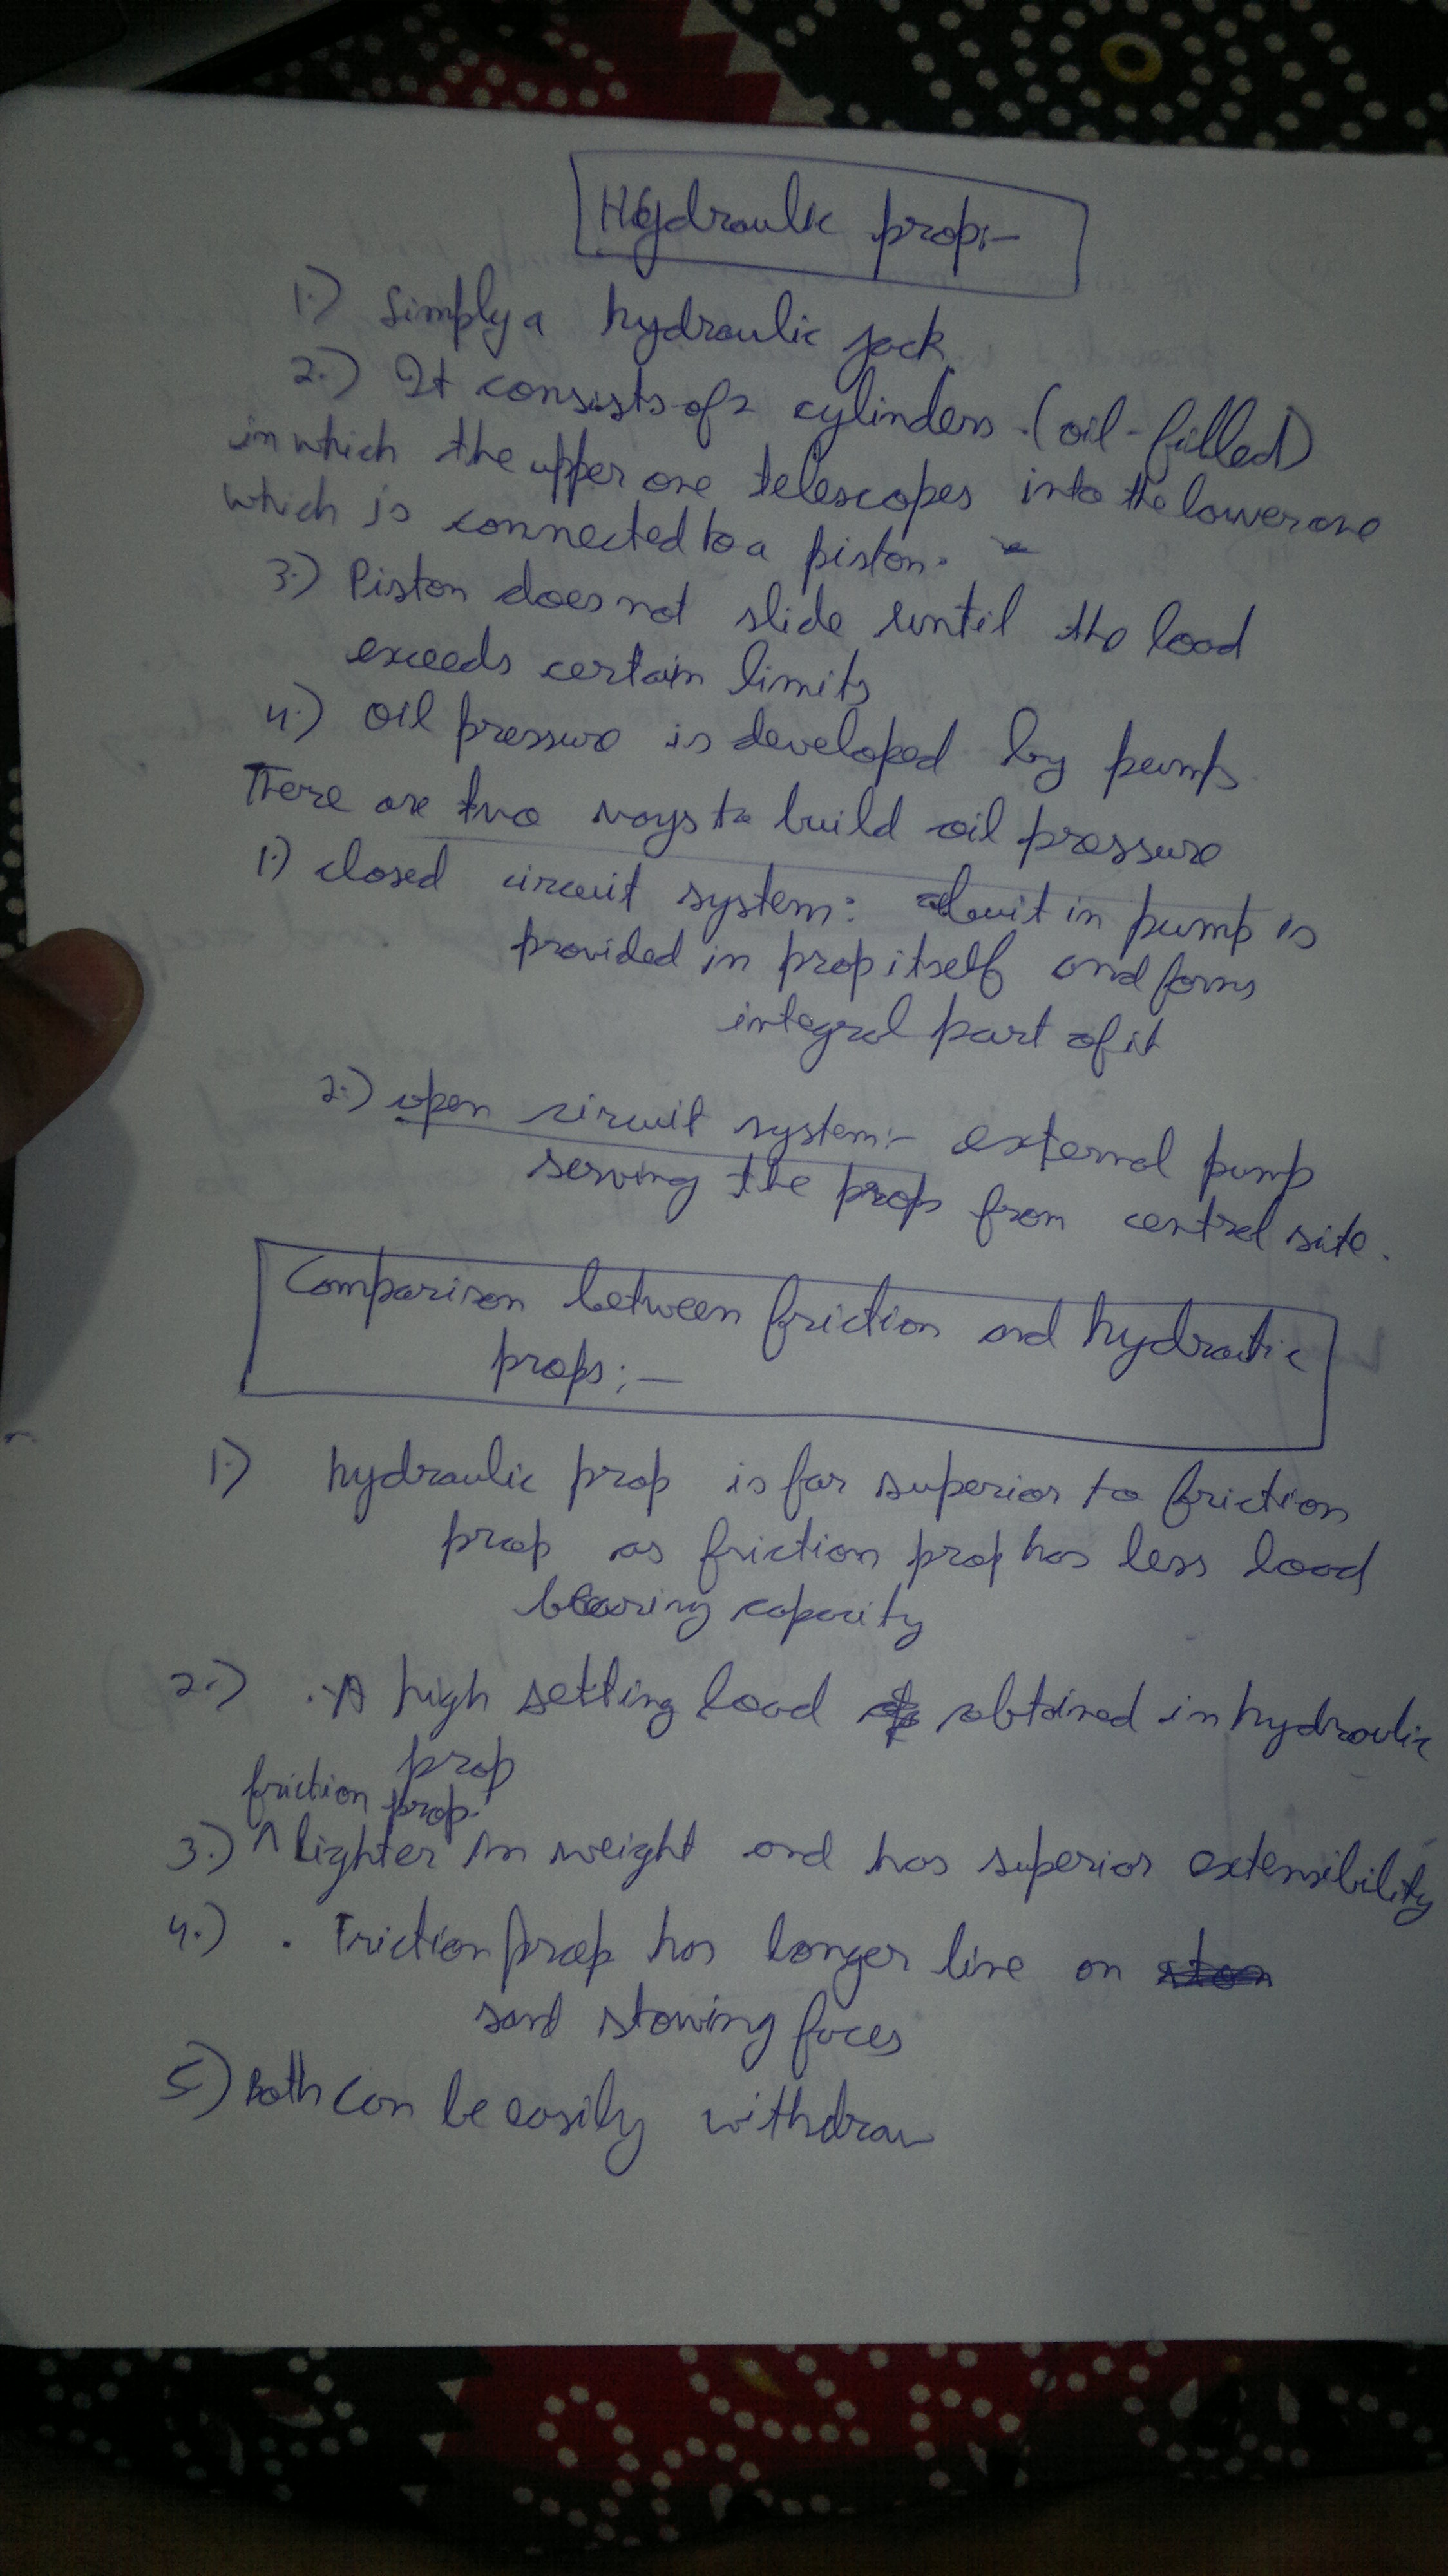 Hydraulic prop:-
1.) Simply a hydraulic jack.
2.) It consists of 2 cylinders. (oil-filled)
in which the upper one telescopes into the lower one
which is connected to a piston.
3.) Piston does not slide until the load
exceeds certain limits
4.) Oil pressure is developed by pump.
There are two ways to build oil pressure
1.) closed circuit system: buit in pump is
provided in prop itself and forms
integral part of it
2.) open circuit system:- external pump
serving the props from central site.
Comparison between friction and hydraulic
props:-
1.) hydraulic prop is far superior to friction
prop as friction prop has less load
bearing capacity
2.) . A high setting load obtained in hydraulic
prop
friction prop.
3.) ^ lighter in weight and has superior extensibility
4.) . Friction prop has longer live on
sand stowing faces
5.) Both can be easily withdraw